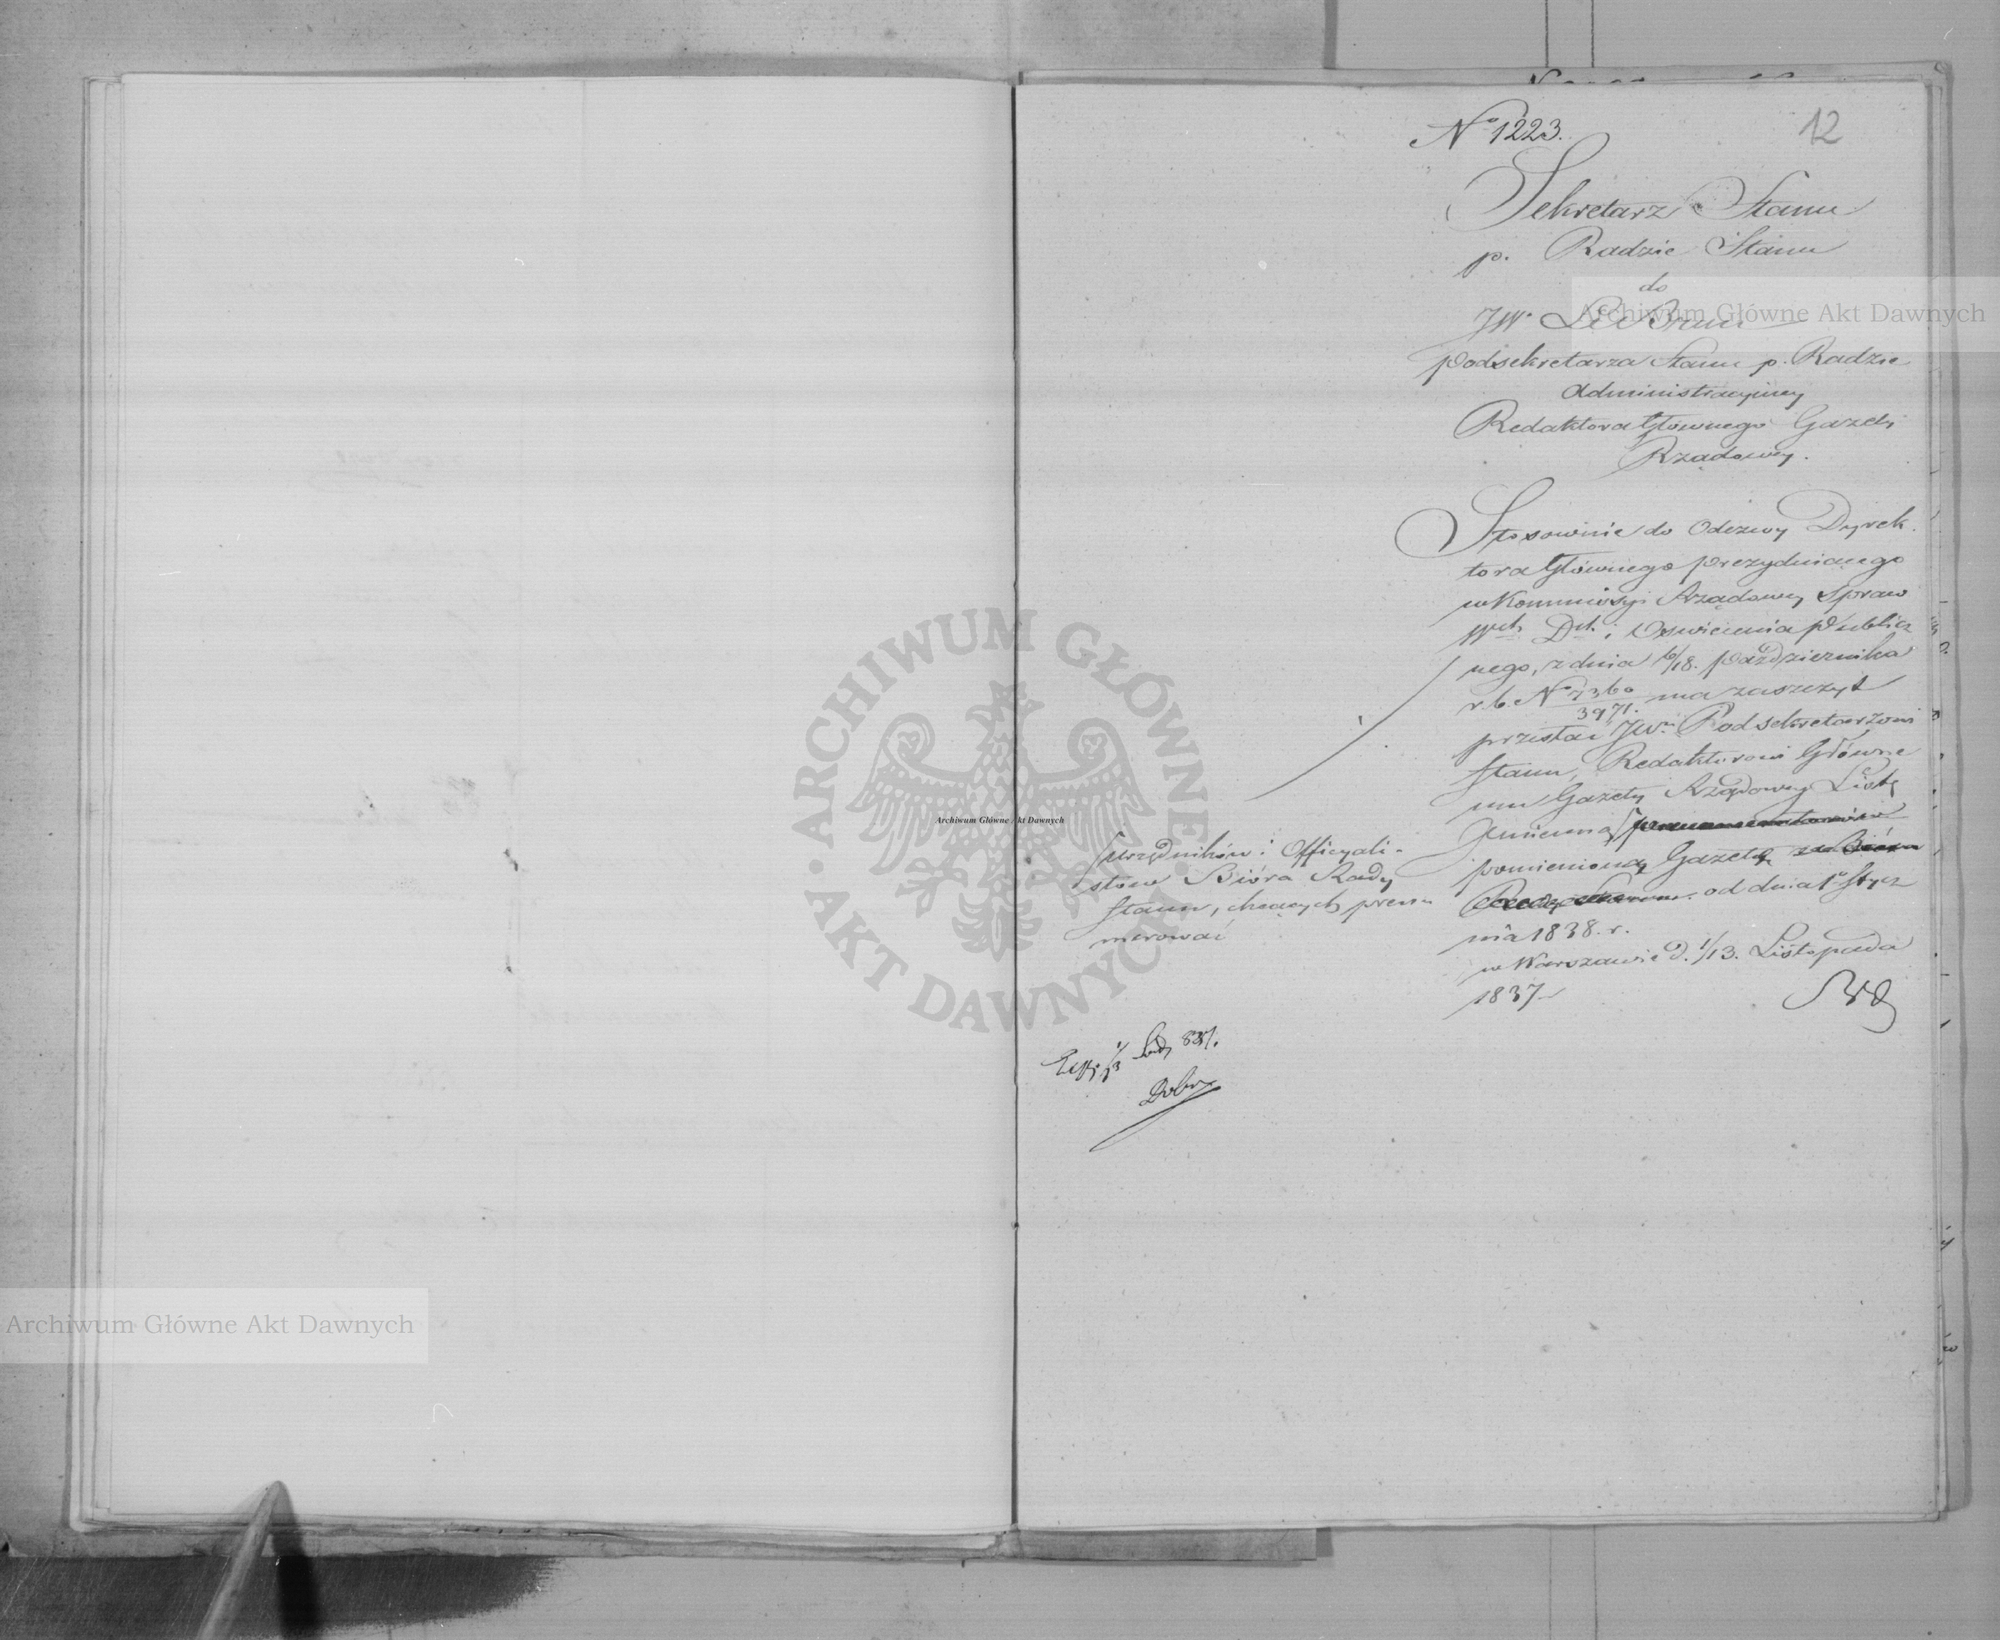 12
No 1223.
Sekretarz Stanu
p. Radzie Stanu
do
JW. Le Brun
Podsekretarza Stanu p. Radzie
Administracyiney
Redaktora Głównego Gazety
Rządowey.
Stosownie do Odezwy Dyrek
tora Głównego prezyduiącego
w Kommissyi Rządowey Spraw
Wch Dch i Oświecenia Publicz
nego, z dnia 6/18. Października
r.b. No 7360/3971. ma zaszczyt
przesłać JW. Podsekretarzowi
Stanu, Redaktorowi Główne
mu Gazety Rządowey Listę
Jmienną prenumeratorów
pomienioną Gazetę w Biórze
Rady Stanu. od dnia 1o Stycz
nia 1838. r.
w Warszawie d. 1/13. Listopada
1837
urzędników i Officyali-
stów Bióra Rady
Stanu, chcących prenu
merować
1/13 837.
Archiwum Główne Akt Dawnych
Archiwum Główne Akt Dawnych
Archiwum Główne Akt Dawnych
ARCHIWUM GŁÓWNE • AKT DAWNYCH •